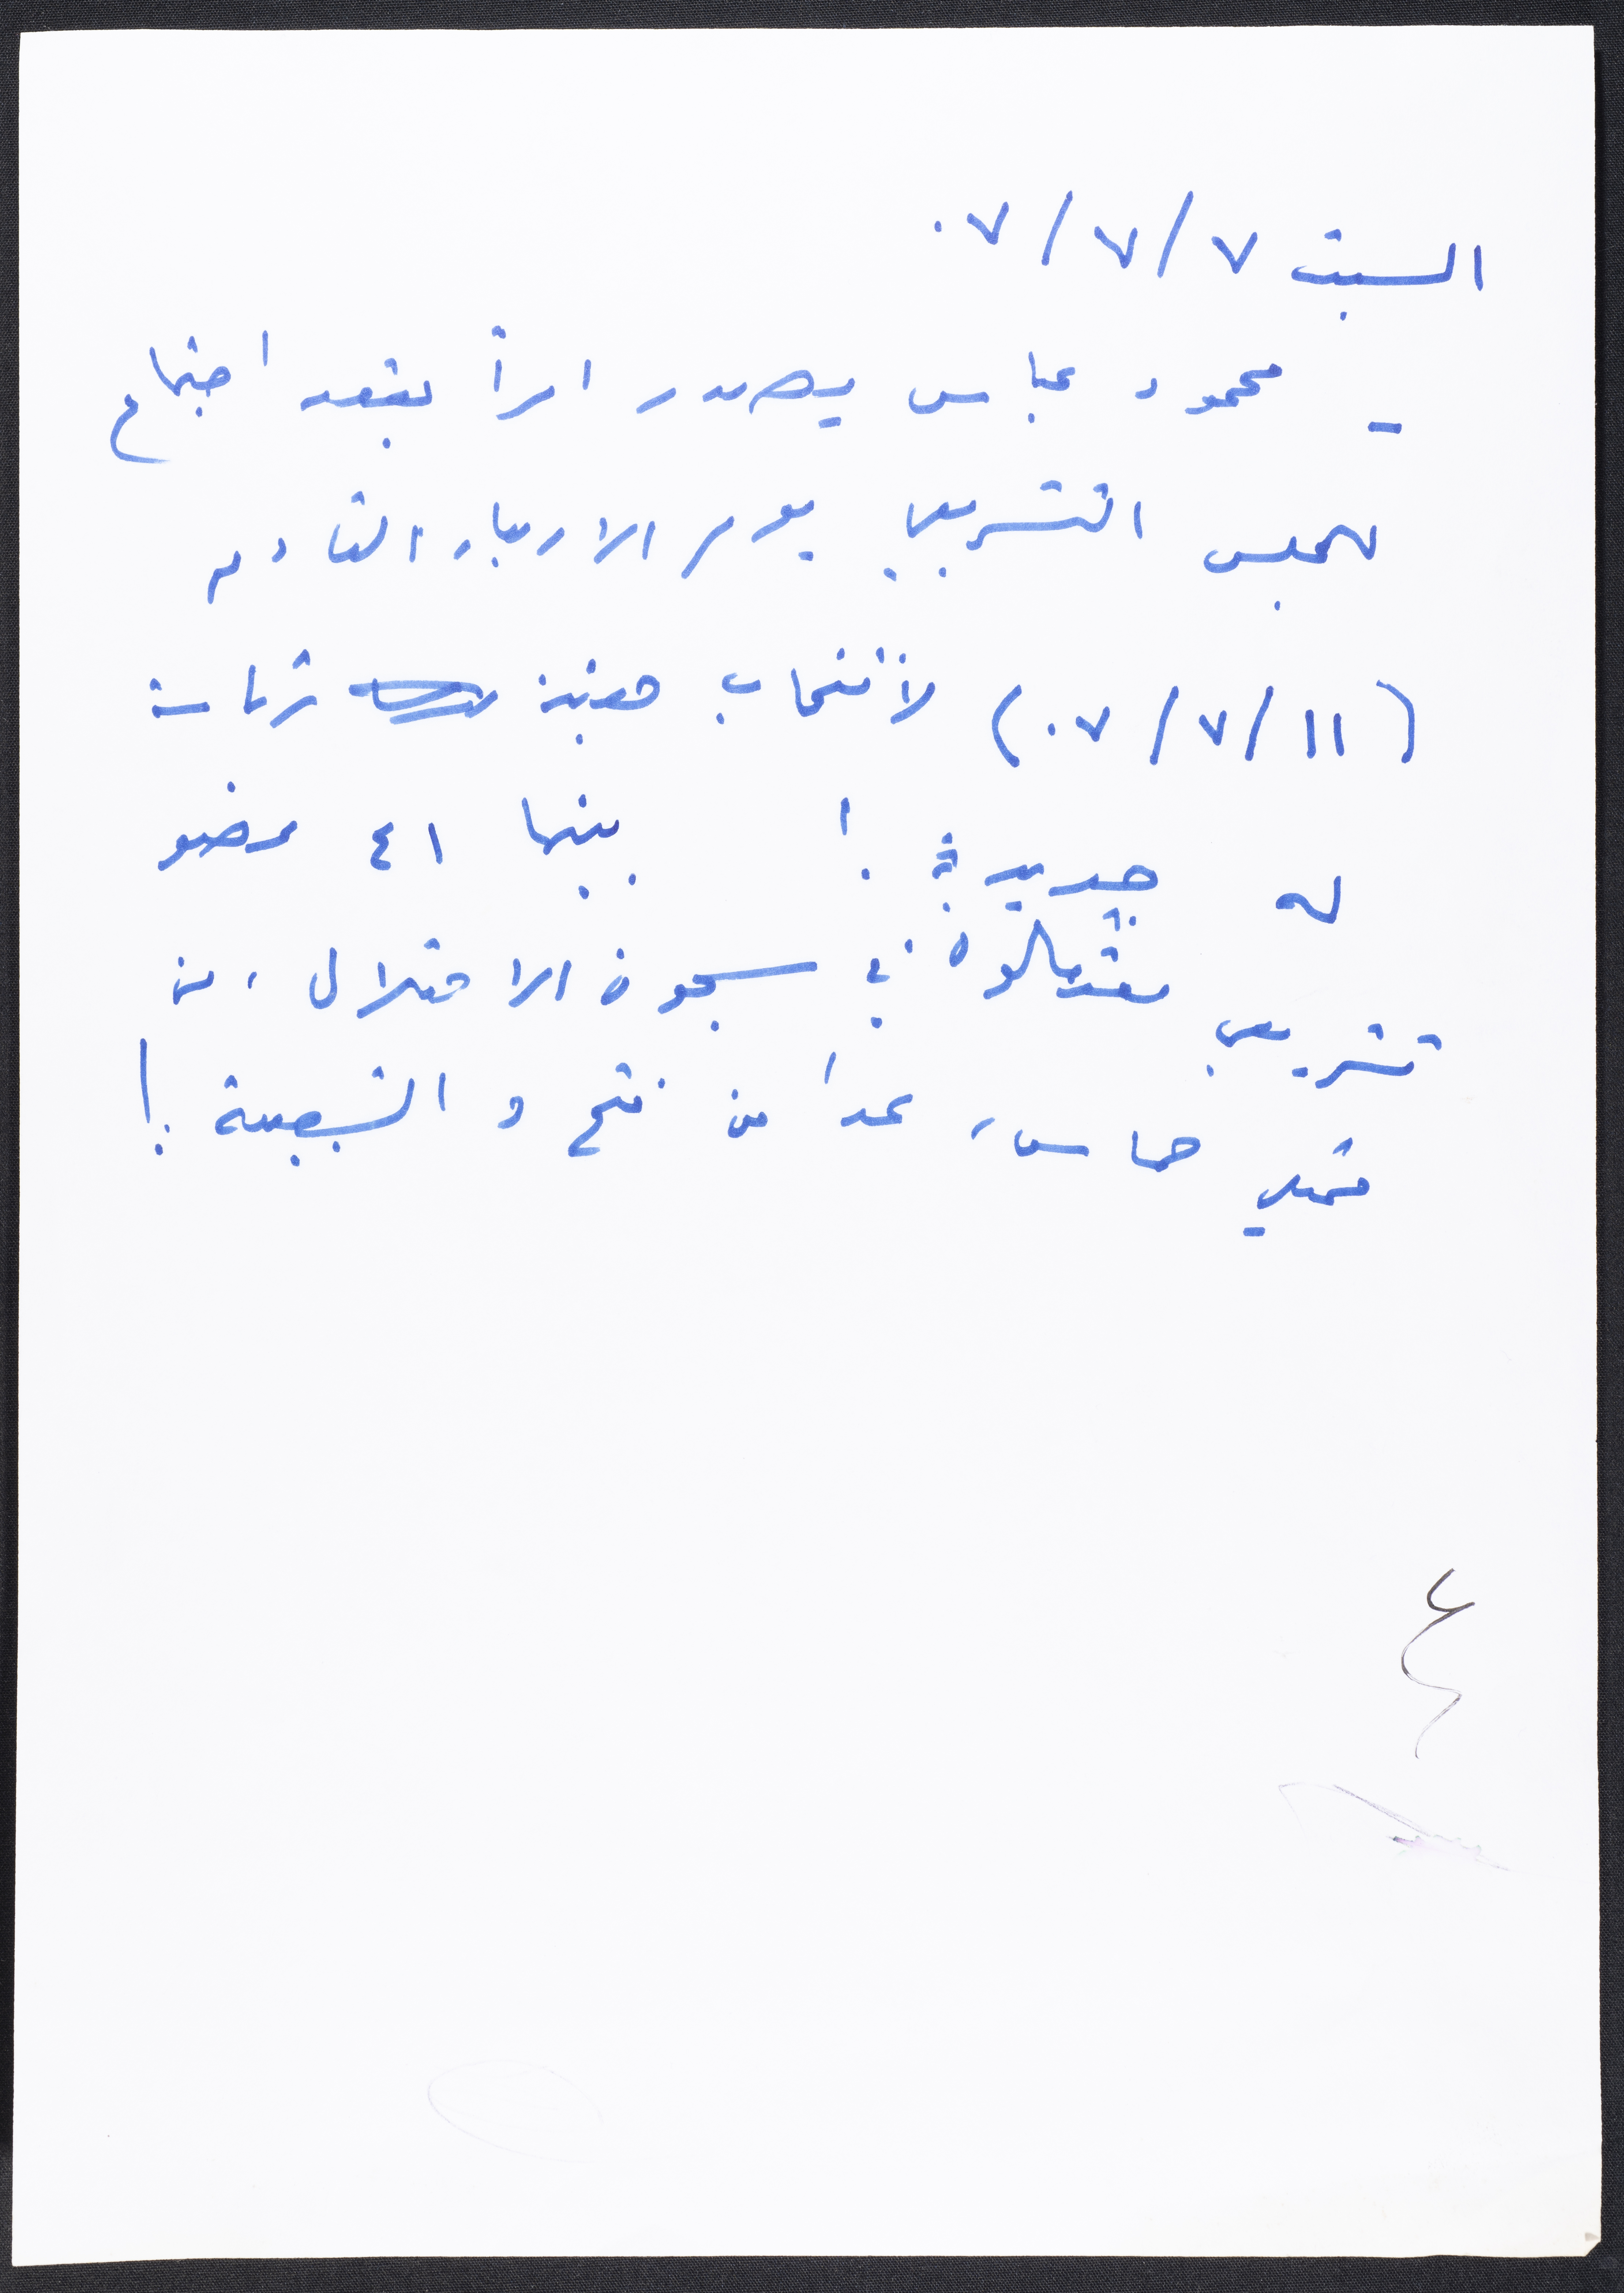 السبت ٧/٧/٠٧
- محمود عباس يصدر امراً بعقد اجتماع
للمجلس التشريعي يوم الاربعاء القادم
(١١/٧/٠٧) لانتخاب هيئة رئاسة
له جديدة ! بينها ٤١ عضو
تشريعي معتقلون في سجون الاحتلال، من
ممثلي حماس، عدا من فتح و الشعبية !
٤